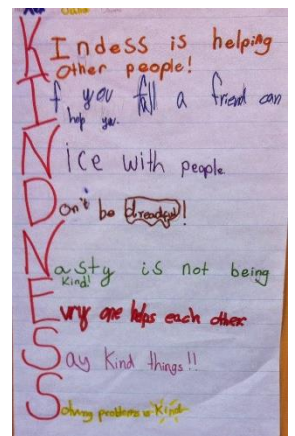 KIndess is helping
Other people!
If you fall a friend can
help you.
Nice with people.
Don't be dreadful!
Nasty is not being
Kind!
Evry one helps each other
Say Kind things!!
Solving problems is Kind